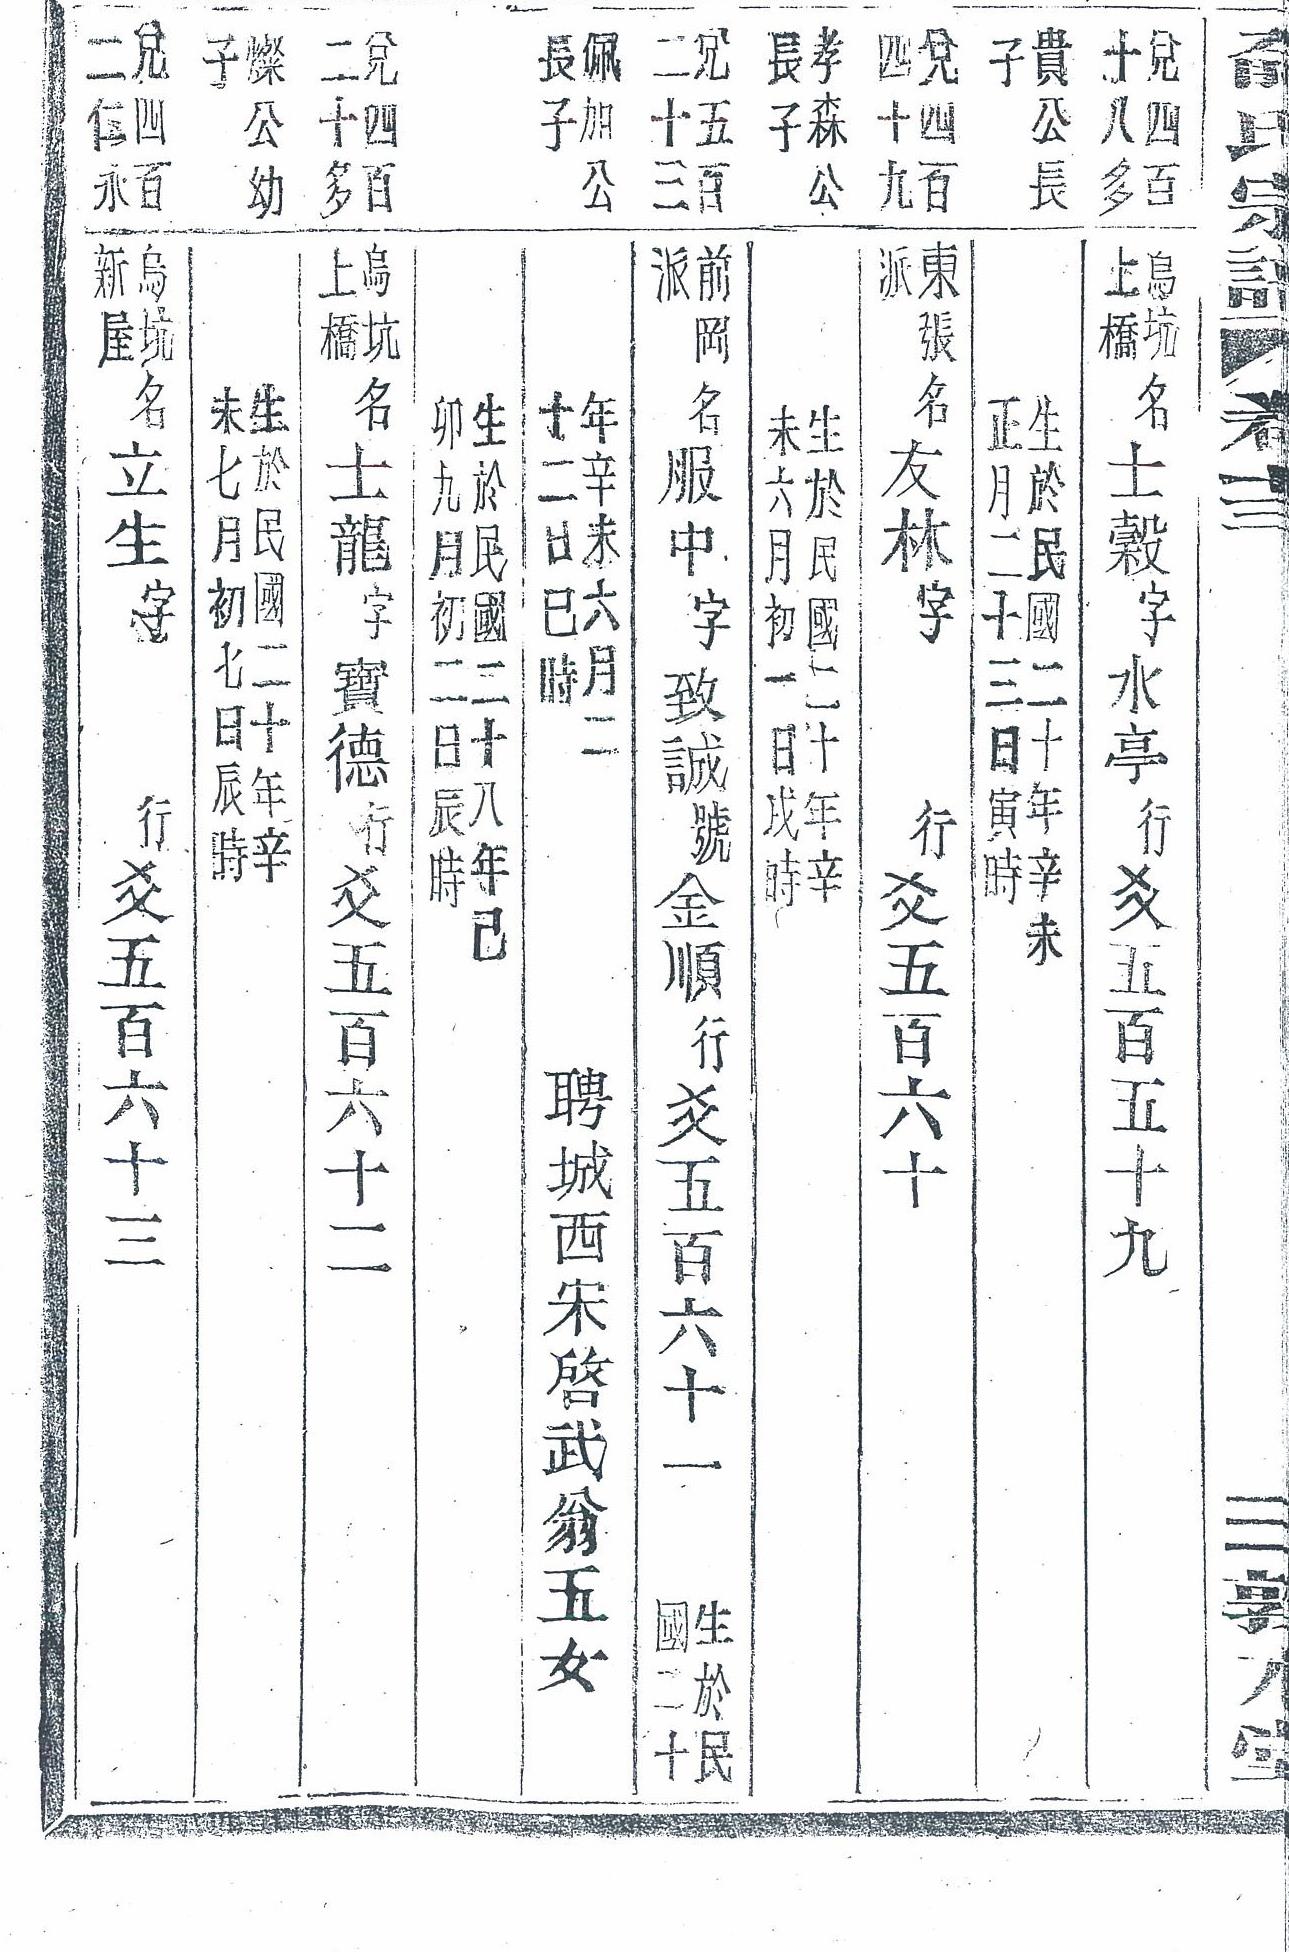 氏宗譜
卷
三
兌四百
十八多
烏坑
上橋
名士穀字水亭行爻五百五十九
貴公長
子
生於民國二十年辛未
正月二十三日寅時
兌四百
四十九
東張
派
名友林字 行爻五百六十
孝森公
長子
生於民國二十年辛
未六月初一日戌時
兌五百
二十三
前岡
派
名服中字致誠號金順行爻五百六十一
生於民
國二十
佩加公
長子
年辛未六月二
十二日巳時
聘城西宋啓武翁五女
生於民國二十八年己
卯九月初二日辰時
兌四百
二十多
烏坑
上橋
名士龍字寶德行爻五百六十二
燦公幼
子
生於民國二十年辛
未七月初七日辰時
兌四百
二仁永
烏坑
新屋
名立生字 行爻五百六十三